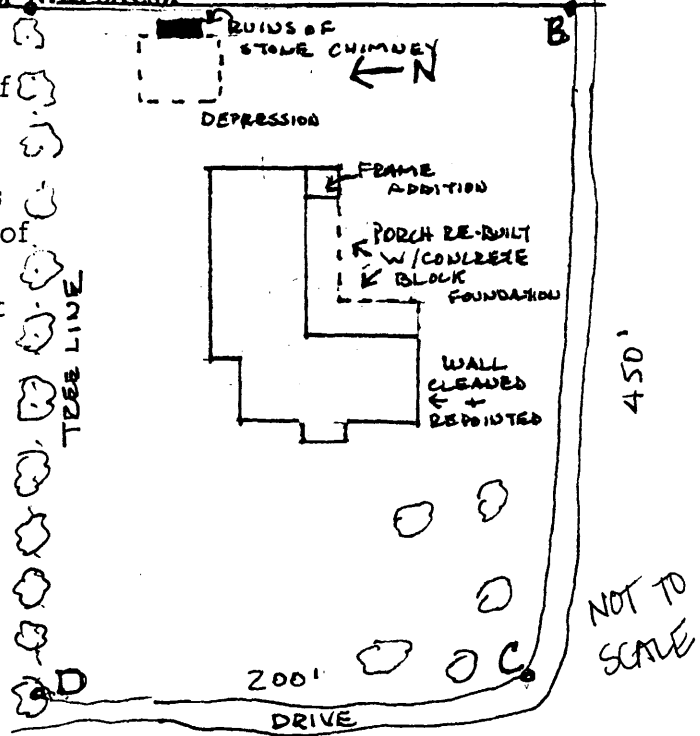 B
RUINS OF
STONE CHIMNEY
N
DEPRESSION
f
FRAME
ADDITION
of
PORCH RE-BUILT
W/CONCRETE
BLOCK
FOUNDATION
TREE LINE
WALL
CLEANED
+
REPOINTED
450'
NOT TO
SCALE
D
200'
C
DRIVE